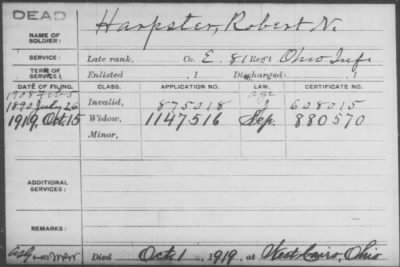 DEAD
NAME OF SOLDIER: Harpster, Robert N.
SERVICE: Late rank, Co. E, 81 Reg't Ohio Inf.
TERM OF SERVICE: Enlisted , 1 Discharged , 1
DATE OF FILING. CLASS. APPLICATION NO. LAW. CERTIFICATE NO.
1908 Feb 5 age
1890 July 26 Invalid, 875018 J 608015
1919, Oct. 15 Widow, 1147516 Sep. 880570
Minor,
ADDITIONAL SERVICES:
REMARKS:
Died Oct 1, 1919, at West Cairo, Ohio